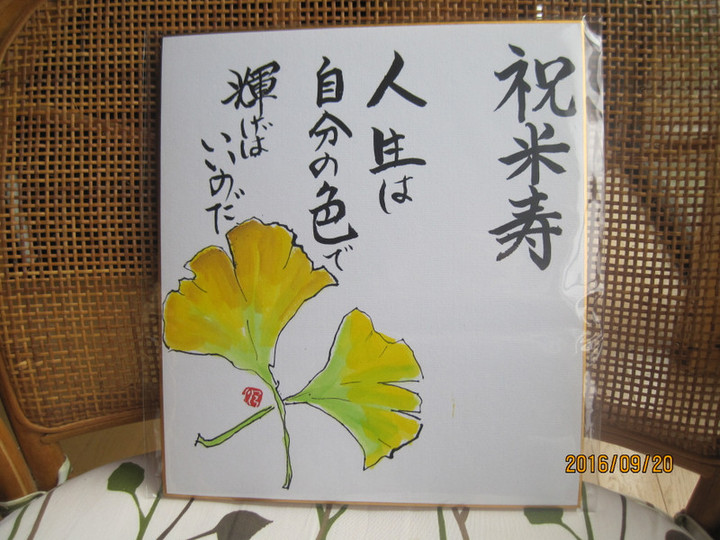 祝米寿
人生は
自分の色で
輝けば
いいのだ
2016/09/20